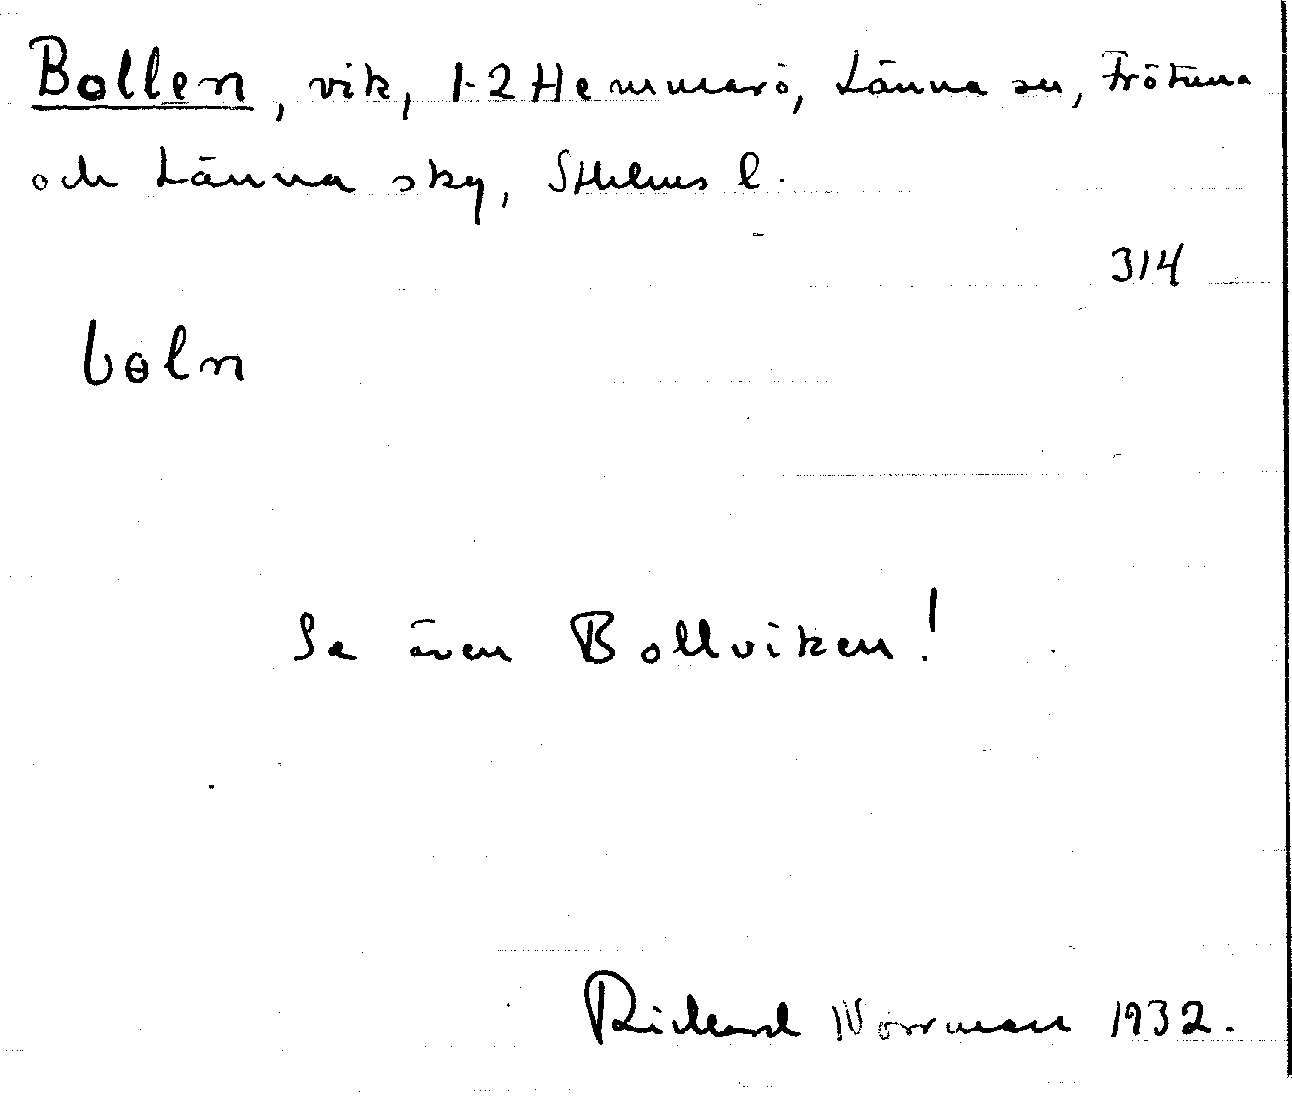 Bollen, vik, 1-2 Hemmarö, Länna sn, Frötuna
och Länna skg, Sthlms l.
314
bɵln
Se även Bollviken!
Richard Norrman 1932.